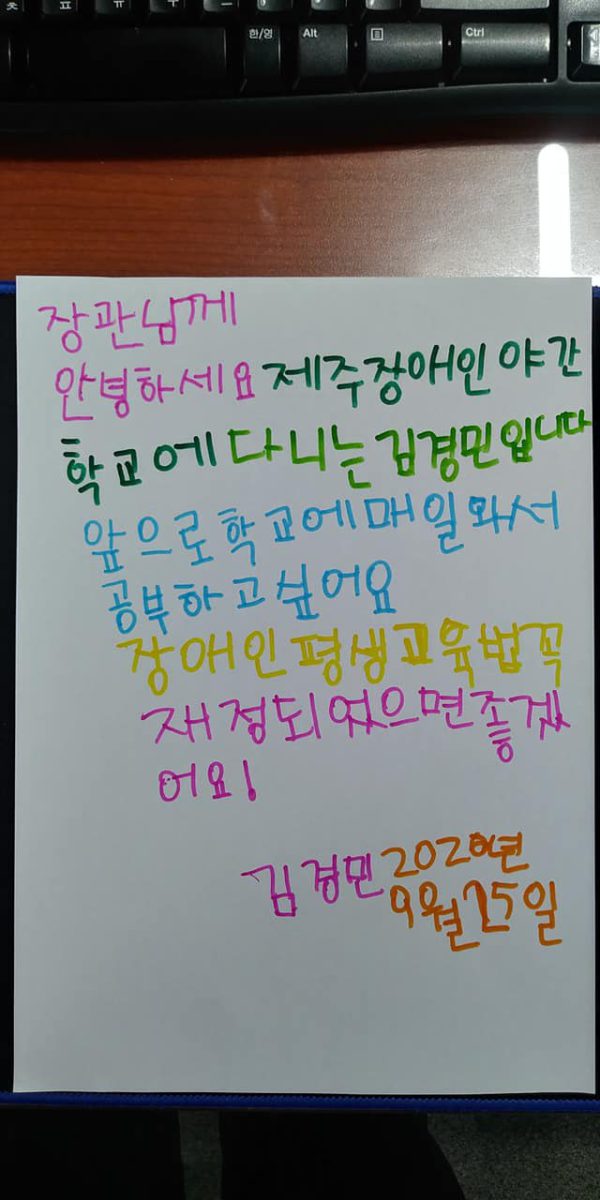 ㅊ ㅍ ㅠ ㅜ
한/영 Alt Ctrl
장관님께
안녕하세요 제주장애인 야간
학교에 다니는 김경민입니다
앞으로 학교에 매일 와서
공부하고 싶어요
장애인 평생교육법 꼭
재정되었으면 좋겠
어요!
김경민 2020년
9월 25일